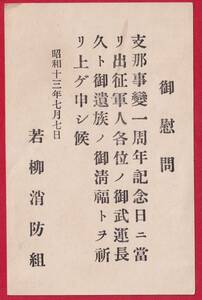 御慰問
支那事變一周年記念日ニ當
リ出征軍人各位ノ御武運長
久ト御遺族ノ御淸福トヲ祈
リ上ゲ申シ候
昭和十三年七月七日
若柳消防組